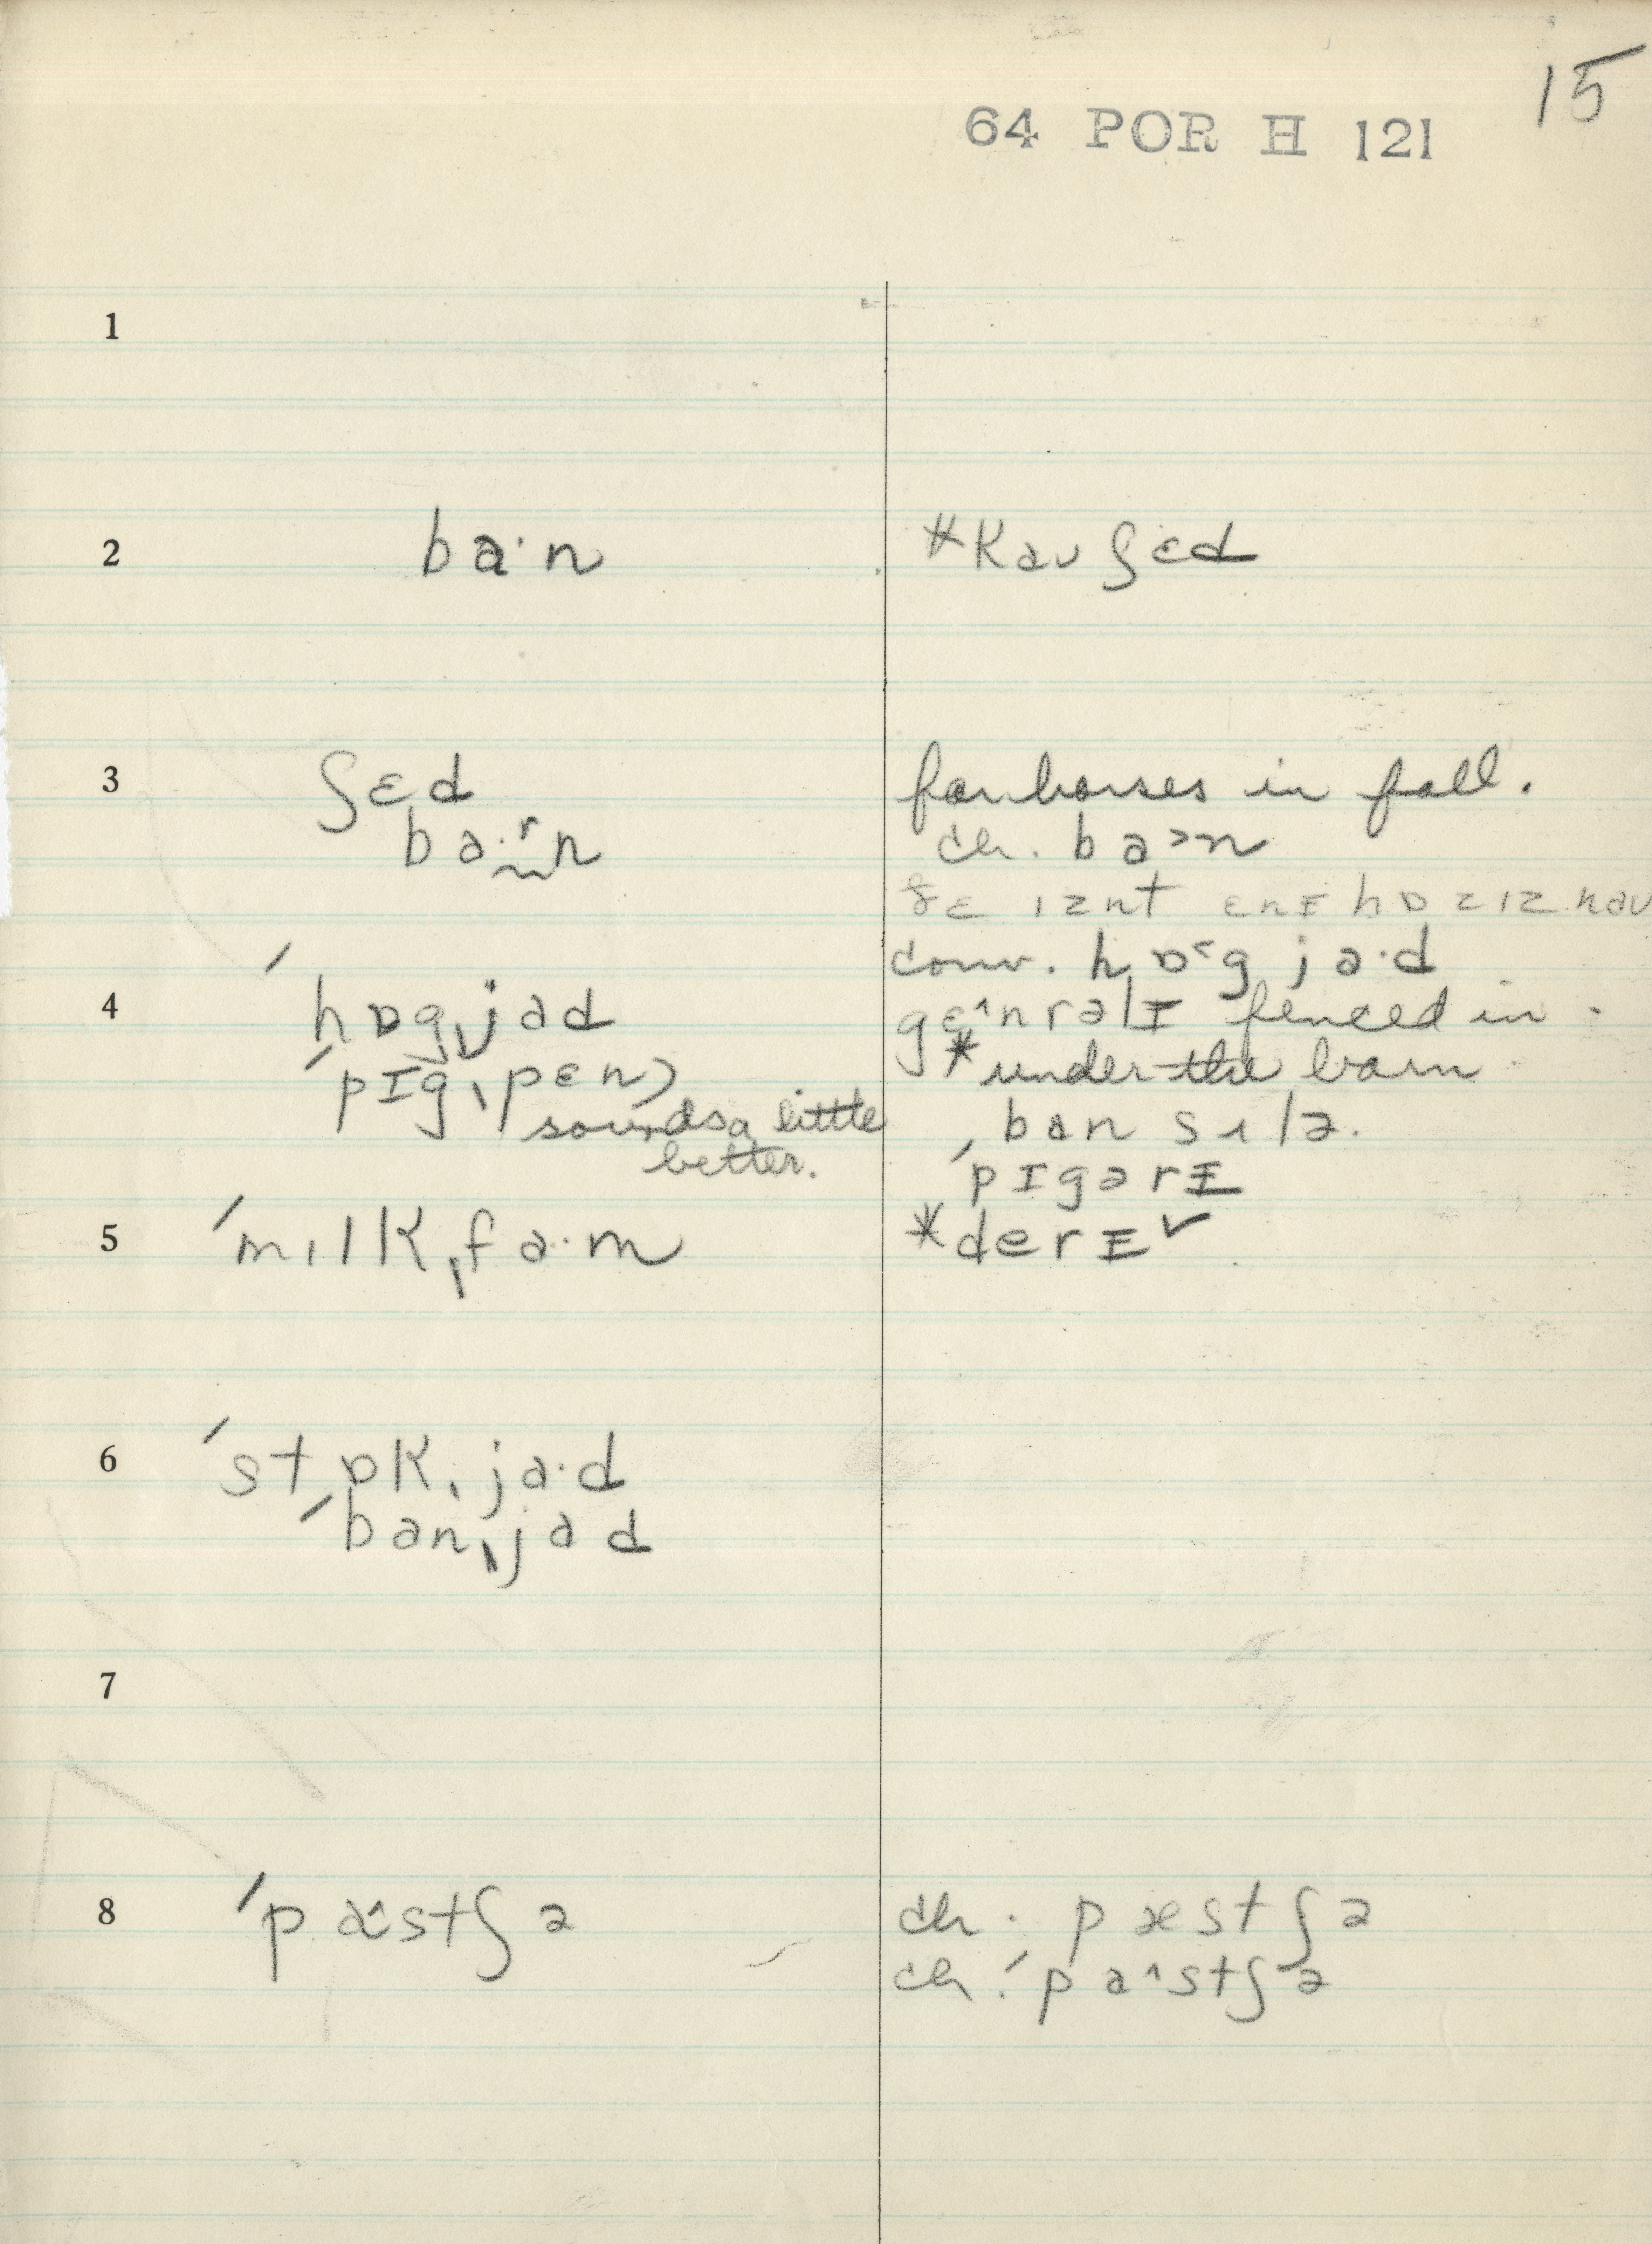 15
64 POR H 121
1
2 ba·n *kau ʃɛd
3 ʃɛd for horses in fall.
ba·ʳn ch. ba>n
ðɛ ɪznt ɛnɪ hɒzɪz nau
conv. hɒ˂g ja·d
4 ˈhɒgˌjad gɛ^nrəlɪ fenced in.
ˈpɪgˌpɛn) *under the barn
sounds a little ban sɪlə.
better. ˈpɪgərɪ
5 ˈmɪlkˌfa·m *derɪ ✓
6 ˈstɒkˌja·d
ˈbanˌjad
7
8 ˈpæ^stʃə ch. pæstʃə
ch. ˈpa^stʃə